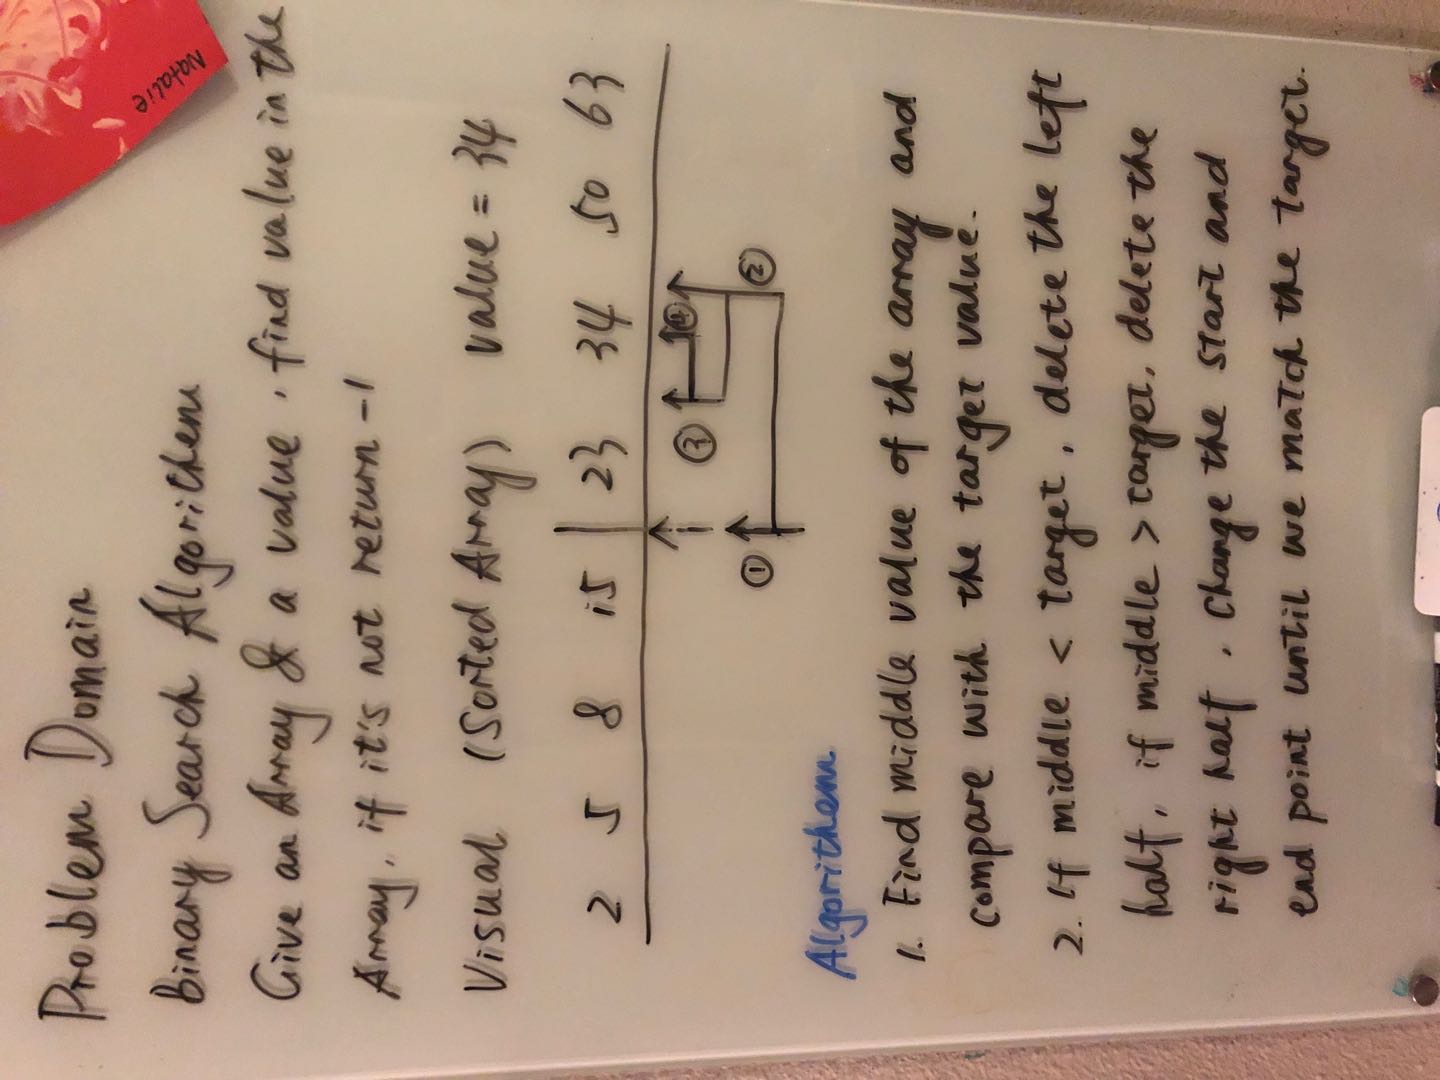 Problem Domain
Natalie
Binary Search Algorithem
Give an Array & a value, find value in the
Array, if it's not return -1
Visual (Sorted Array) value = 34
2 5 8 15 | 23 34 50 63
③ ④
① ②
Algorithem
1. Find middle value of the array and
compare with the target value.
2. If middle < target, delete the left
half, if middle > target, delete the
right half. Change the start and
end point until we match the target.